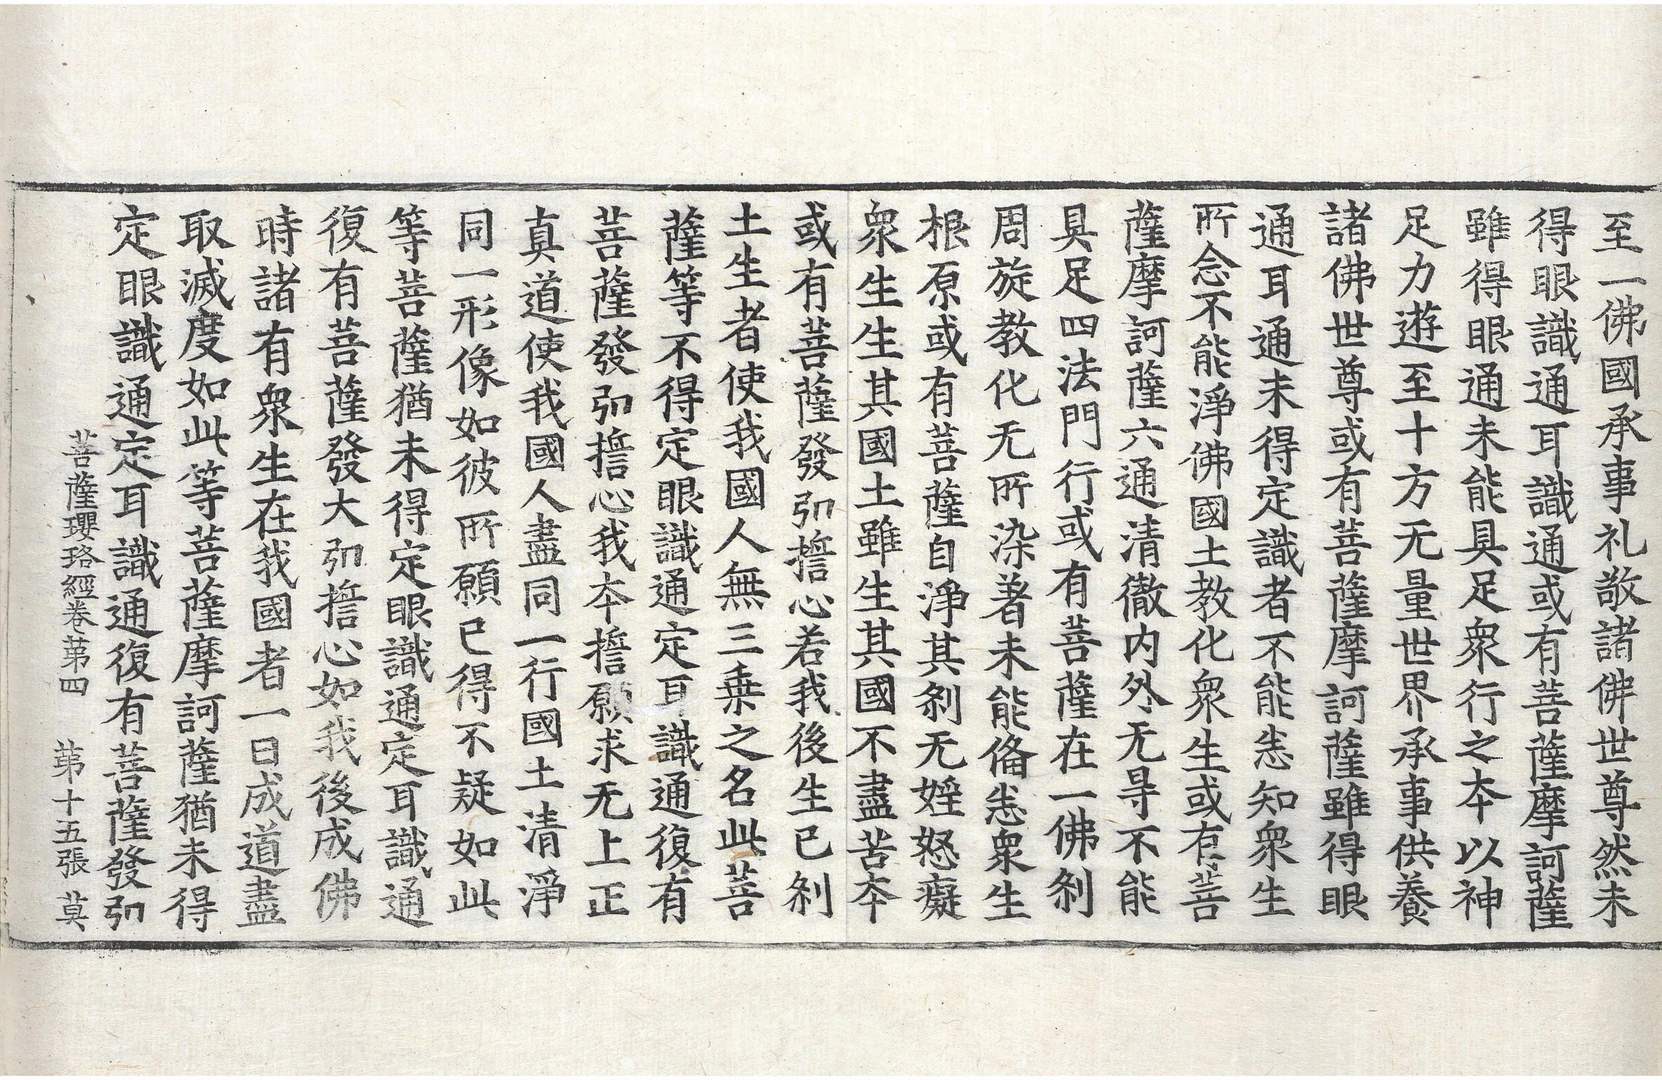 至一佛國承事礼敬諸佛世尊然未
得眼識通耳識通或有菩薩摩訶薩
雖得眼通未能具足衆行之本以神
足力遊至十方无量世界承事供養
諸佛世尊或有菩薩摩訶薩雖得眼
通耳通未得定識者不能悉知衆生
所念不能淨佛國土教化衆生或有菩
薩摩訶薩六通清徹内外无㝵不能
具足四法門行或有菩薩在一佛刹
周旋教化无所染著未能俻悉衆生
根原或有菩薩自淨其刹无婬怒癡
衆生生其國土雖生其國不盡苦本
或有菩薩發弘誓心若我後生已刹
土生者使我國人無三乘之名此菩
薩等不得定眼識通定耳識通復有
菩薩發弘誓心我本誓願求无上正
真道使我國人盡同一行國土清淨
同一形像如彼所願已得不疑如此
等菩薩猶未得定眼識通定耳識通
復有菩薩發大弘誓心如我後成佛
時諸有衆生在我國者一日成道盡
取滅度如此等菩薩摩訶薩猶未得
定眼識通定耳識通復有菩薩發弘
菩薩瓔珞經卷苐四　苐十五張　莫